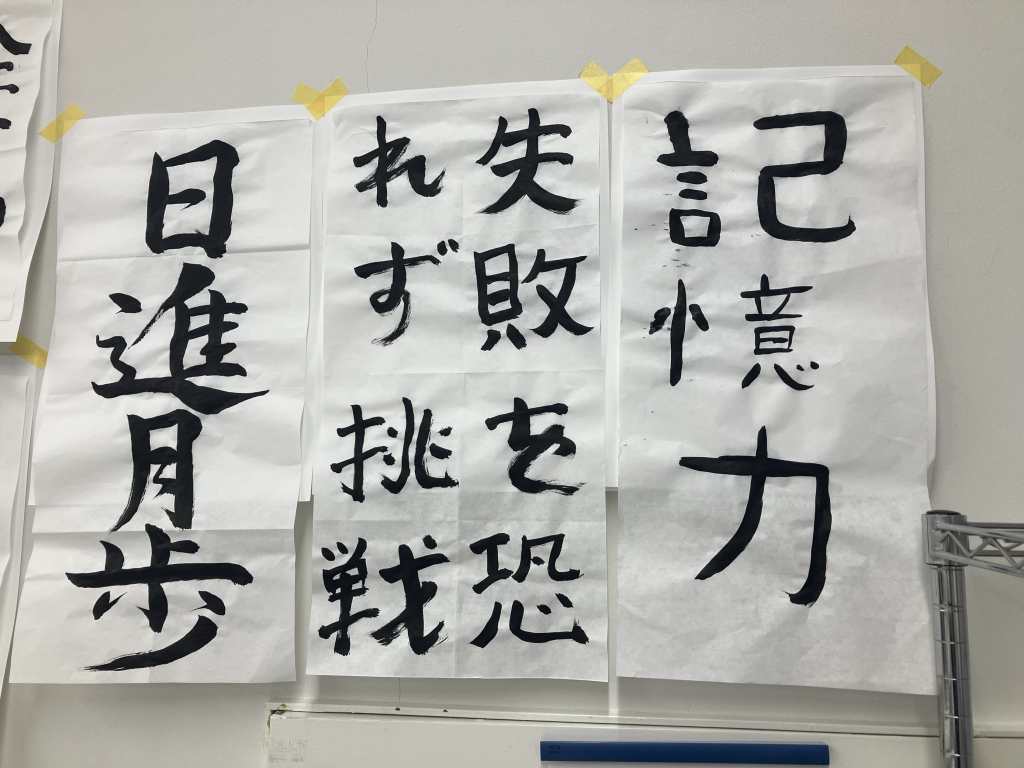 記憶力
失敗を恐
れず挑戦
日進月歩